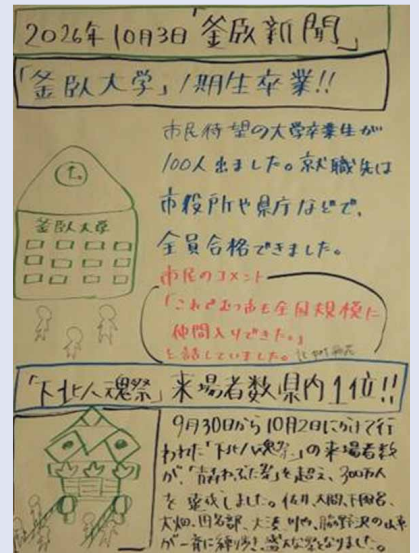 2026年10月3日「釜臥新聞」
「釜臥大学」1期生卒業!!
市民待望の大学卒業生が
100人出ました。就職先は
市役所や県庁などで、
全員合格できました。
釜臥大学
市民のコメント
「これでむつ市も全国規模に
仲間入りできた。」
と話していました。
「下北人魂祭」来場者数県内1位!!
9月30日から10月2日にかけて行
われた「下北人魂祭」の来場者数
が、「青森ねぶた祭」を超え、300万人
を達成しました。佐井、大間、
大畑、田名部、大湊、川内、脇野沢の山車
が一斉に練り歩き、盛大な祭となりました。